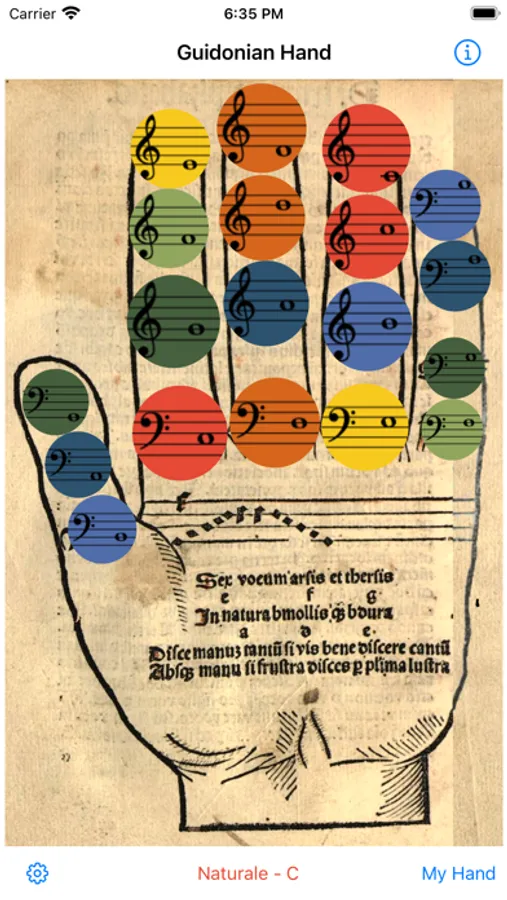 Carrier
6:35 PM
Guidonian Hand
Sex vocum arsis et thesis
e f g
In natura b mollis q̃ʒ b dura
a d e
Disce manuʒ tantũ si vis bene discere cantũ
Absqʒ manu si frustra disces ꝑ plĩma lustra
Naturale - C
My Hand